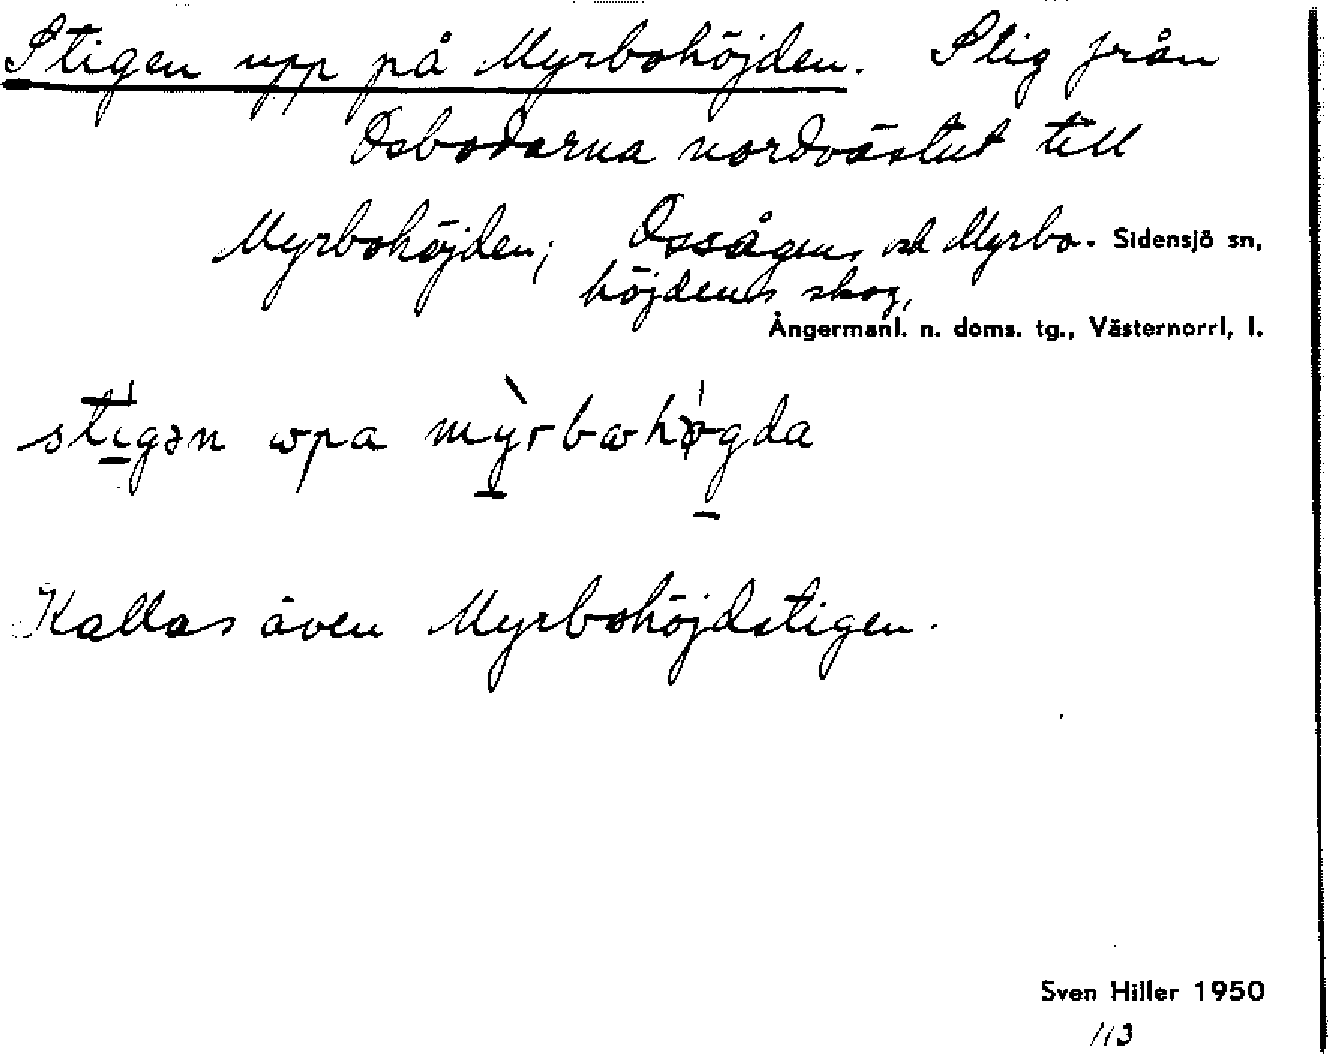 Stigen upp på Myrbohöjden. Stig från
Osbodarna nordvästut till
Myrbohöjden; Ossågens och Myrbo- Sidensjö sn,
höjdens skog,
Ångermanl. n. doms. tg., Västernorrl. l.
stigən ɯpa myrbɷhøgda
Kallas även Myrbohöjdstigen.
Sven Hiller 1950
113